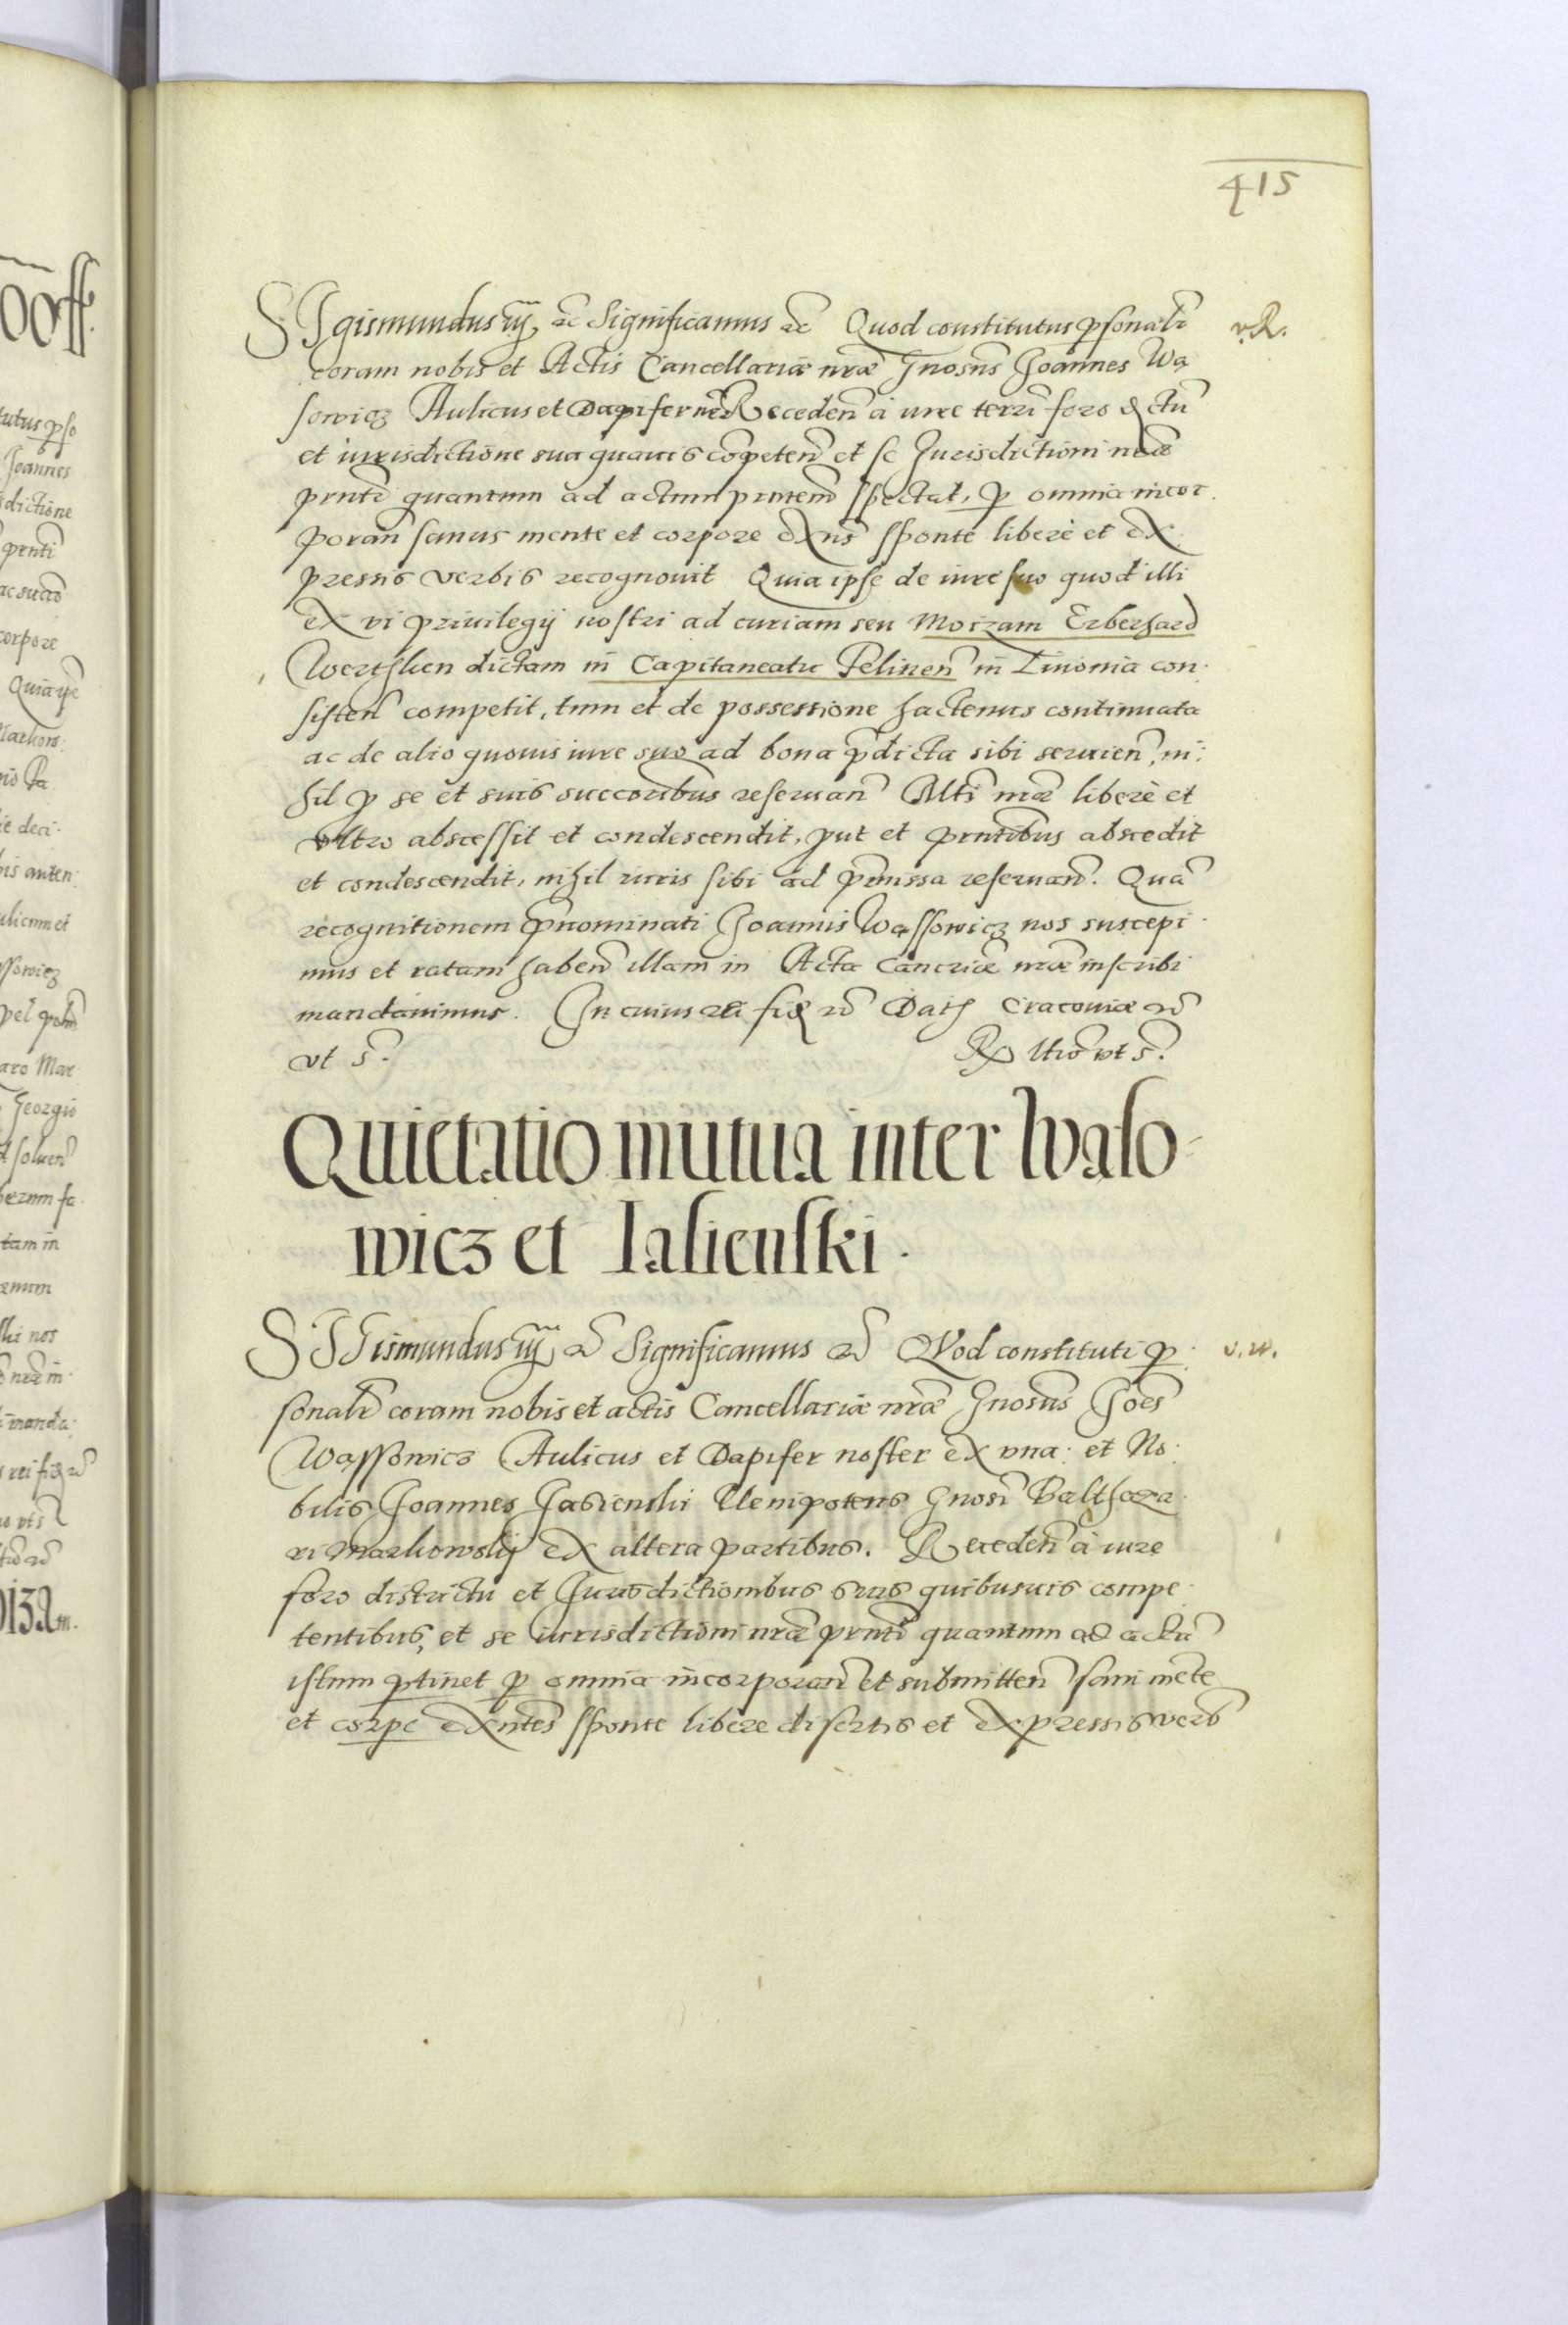 415
SIgismundus iij, etc Significamus etc Quod constitutus psonalr
v.R.
coram nobis et Actis Cancellariæ nræ Gnosus Joannes Wą
sowicz Aulicus et Dapifer nr Receden à iure terri foro dctu
et iurisdictione sua quauis competen et se Jurisdictioni nræ
prnti quantum ad actum prntem spectat, p omnia incor
poran sanus mente et corpore exns sponte liberè et ex
pressis verbis recognouit Quia ipse de iure suo quod illi
ex vi priuilegij nostri ad curiam seu Moizam Erberhard
Werthlien dictam in Capitaneatu Felinen in Liuonia con
sisten competit, tum et de possessione hactenus continuata
ac de alio quouis iure suo ad bona pdicta sibi seruien, ni
hil p se et suis succoribus reseruan Mti nræ liberè et
vltro abscessit et condescendit, put et prntibus abscedit
et condescendit, nihil iuris sibi ad pmissa reseruan. Quã
recognitionem pnominati Joannis Wąssowicz nos suscepi
mus et ratam haben illam in Acta Cancriæ nræ inscribi
mandauimus. In cuius rei fid etc Dat Cracouiæ etc
vt s. Rltio vt s.
Quietatio mutua inter Wąso-
wicz et Iasienski.
SIGismundus iij etc Significamus etc QVod constituti p
v.w.
sonalr coram nobis et actis Cancellariæ nræ Gnosus Joes
Wąssowicz Aulicus et Dapifer noster ex vna et No
bilis Joannes Jasienski Plenipotens Gnosi Balthaza
ri Markowskij ex altera partibus. Receden à iure
foro districtu et Jurisdictionibus suis quibusuis compe
tentibus, et se iurisdictioni nræ prnti quantum ad actu
istum ptinet p omnia incorporan et submitten sani mete
et corpe exntes sponte libere disertis et expressis verb